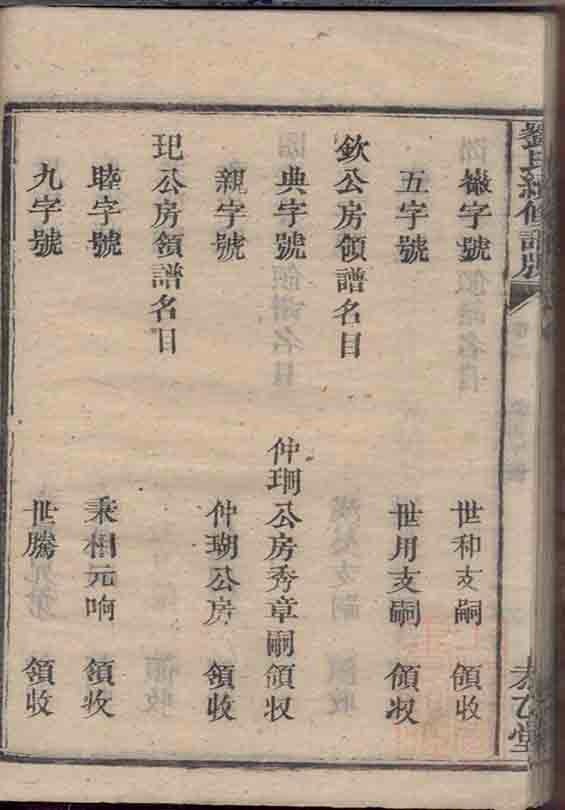 劉氏續修譜
徽字號 世和支嗣 領收
五字號 世用支嗣 領收
欽公房領譜名目
典字號 仲珊公房秀章嗣領收
親字號 仲瑚公房 領收
玘公房領譜名目
睦字號 秉相元响 領收
九字號 世騰 領收
堂